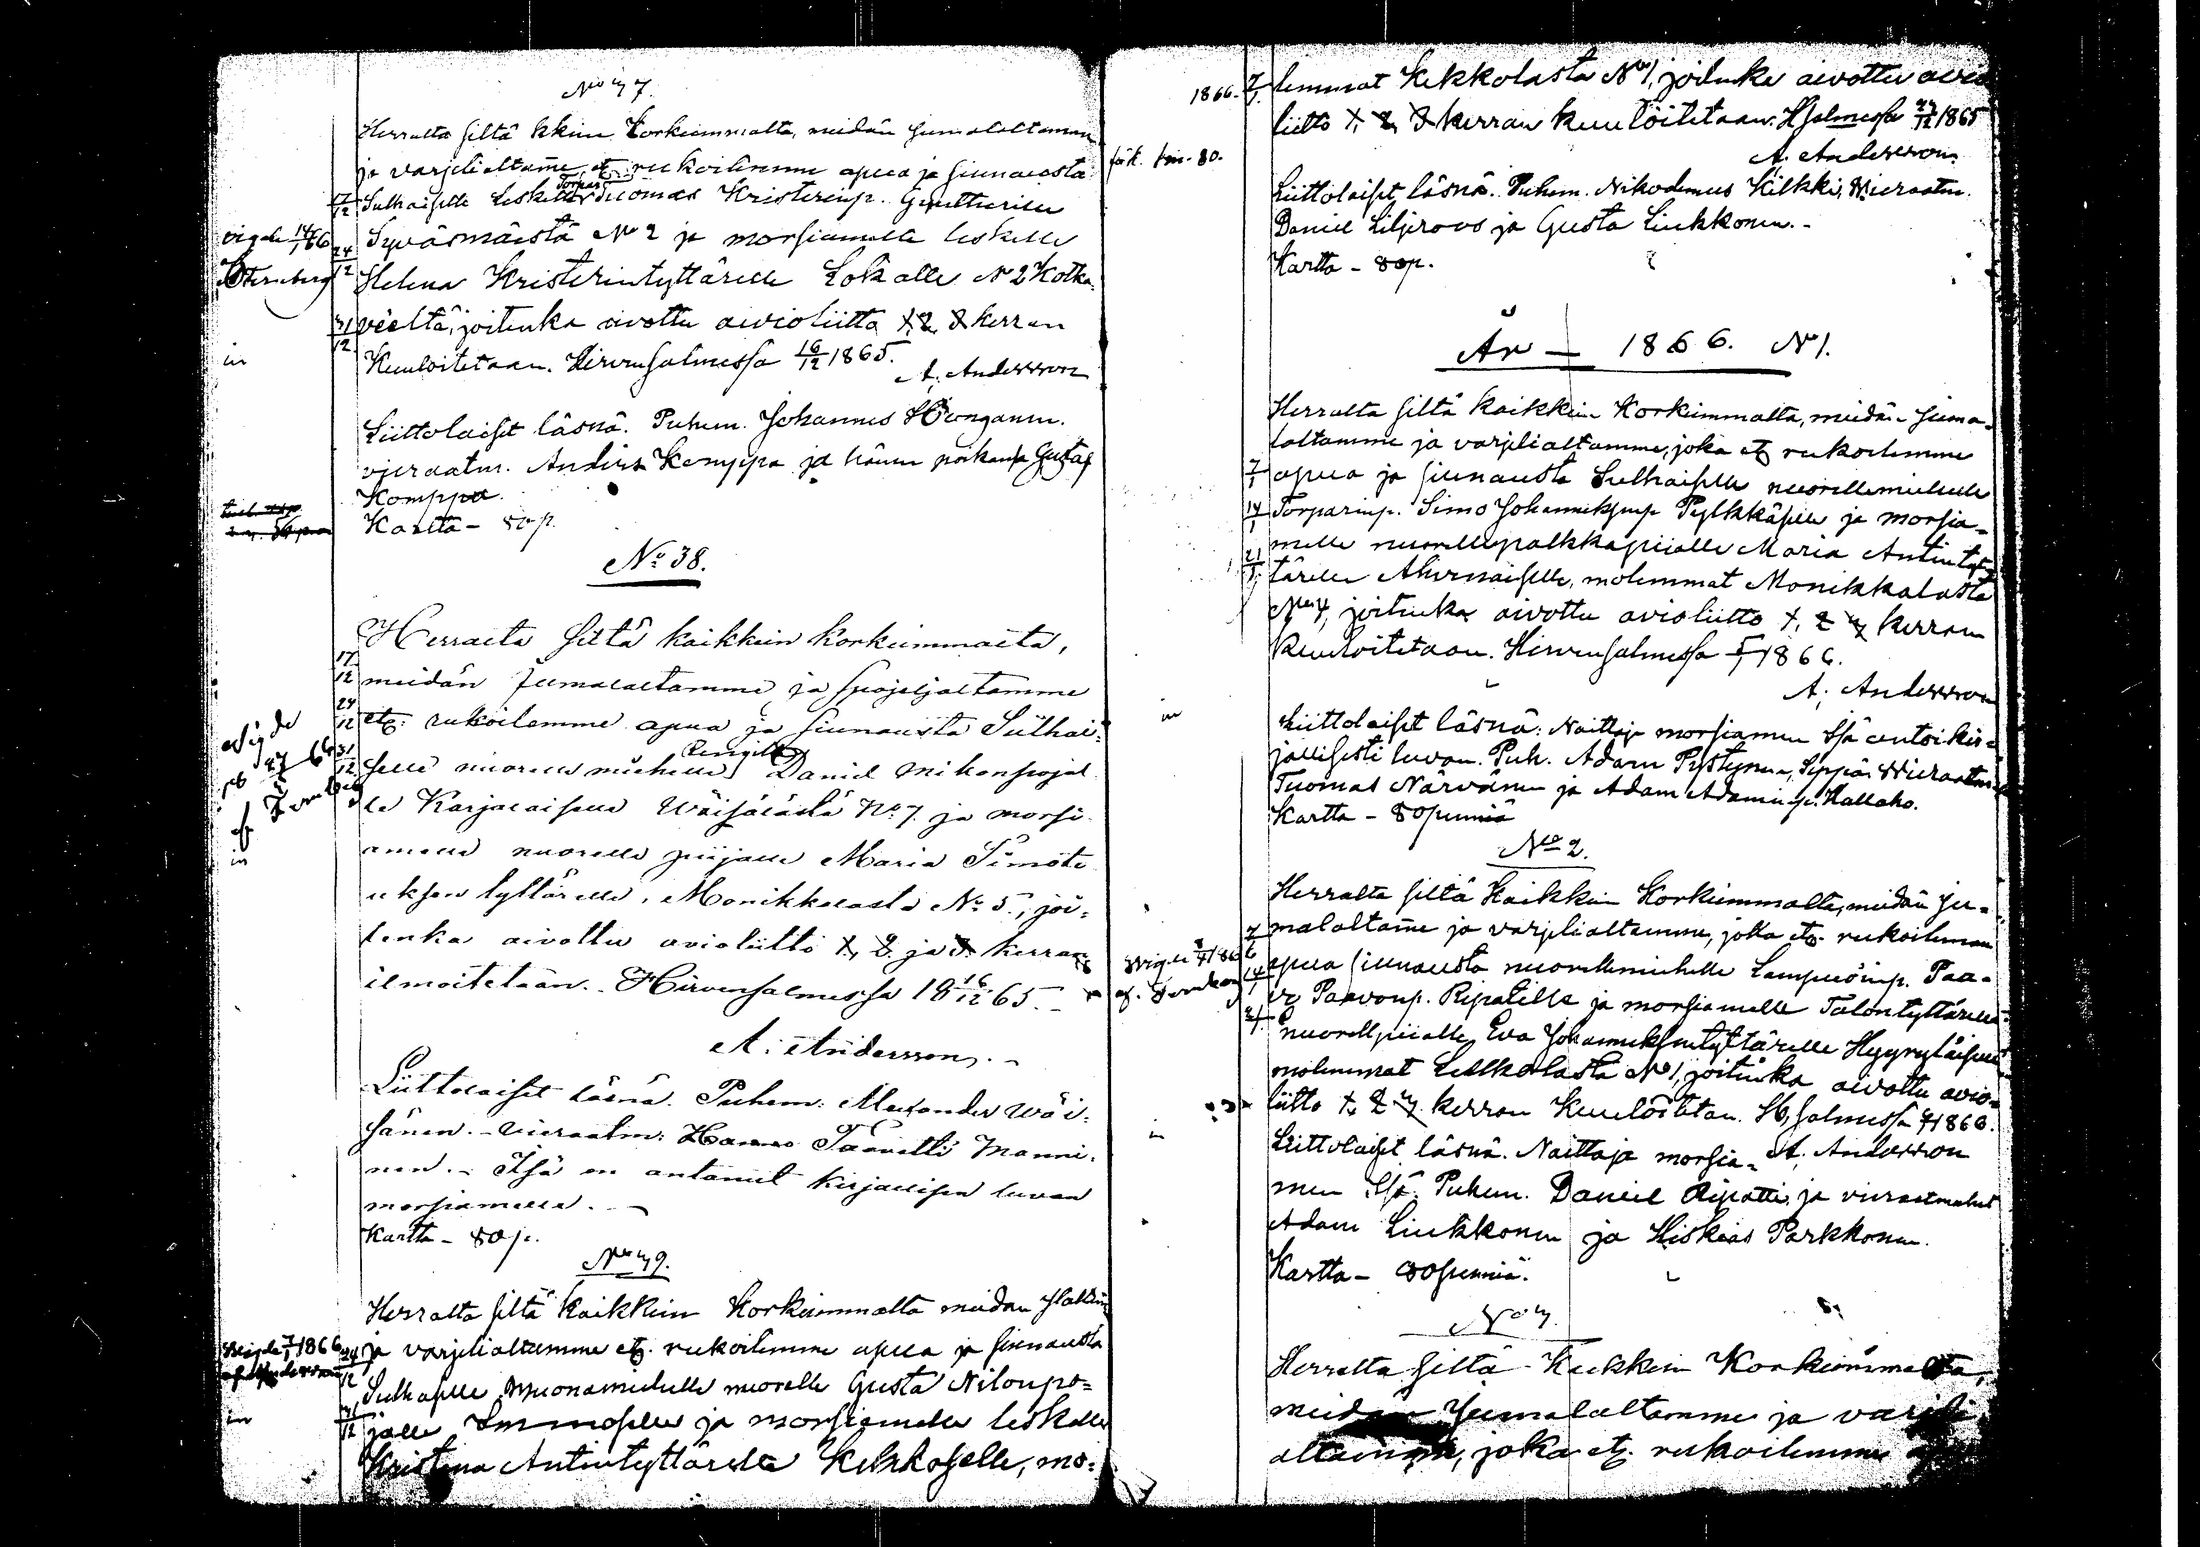 No 37.
Herralta siltä kkein Korkeimmalta, meidän Jumalaltamme
ja varjelialtame, etz rukoilemme apua ja siunausta
17/12 Sulhaiselle Leskelle Torpari Tuomas Kristerinp.
vigde 14/1 66 24/12 Syväsmäestä No 2 ja morsiamelle leskelle
Sternberg Helena Kristerintyttärelle Kokalle N 2 Kotka-
31/12 veeltä, joitenka aivottu avioliitto 1, 2, 3 kerran
in Kuuloitetaan. Hirvensalmessa 16/12 1865.
A. Andersson
Liittolaiset läsnä. Puhem. Johannes Honganen.
vieraatm. Anders Komppa ja hänen poikansa Gustaf
Komppa.
Kartta - 80 p.
No 38.
Herralta siltä kaikkein korkeimmalta,
17/12 meidän Jumalaltamme ja spojeljaltamme
24/12 etz: rukoilemme apua ja siunausta Sulhai-
Vigde 31/12 selle nuorelle miehelle Rengille Daniel Mikonpojal
le Karjalaiselle Wäisälästä No 7. ja morsi
in amelle nuorelle piijalle Maria Simote
uksen tyttärelle, Monikkalasta No 5., joi-
tenka aivottu avioliitto 1, 2. ja 3. kerran
ilmoitetaan. Hirvensalmessa 18 16/12 65.
A: Andersson.
Liittolaiset läsnä. Puhem: Alexander Wäi-
sänen. - Vieraatm: Taavetti Manni-
nen. - Isä on antanut kirjallisen luvan
morsiamelle.
Kartta - 80 p.
No 39.
Herralta siltä kaikkein Korkeimmalta meidän
Vigde 7/1 1866 24/12 ja varjelialtamme etz. rukoilemme apua ja siunausta
af Andersson Sulhaselle Muonamiehelle nuorelle Gusta Nilonpo-
in 31/12 jalle Immoselle ja morsiamelle leskelle
Kristina Antintyttärelle Kekkoselle, mo-
1866. 7/1. lemmat Kekkolasta No 1, joilenka aivottu avio
liitto 1, 2, 3 kerran kuulöitetaan. HSalmessa 23/12 1865
A. Andersson
Liittolaiset läsnä. Puhem. Nikodemus Kilkki, Wieraatm.
Daniel Liljeroos ja Gusta Liukkonen. -
Kartta - 80 p.
År - 1866. N 1.
Herralta siltä kaikkein Korkeimmalta, meidän Juma-
laltamme ja varjelialtamme, joka etz rukoilemme
7/1 apua ja siunausta Sulhaiselle nuorellemiehelle
14/1 Torparinp. Simo Johanneksenp Pylkkäselle ja morsia-
melle nuorellepalkkapiialle Maria Antintyt-
21/1 tärelle Ahvenaiselle, molemmat Monikkalasta
No 4, joitenka aivottu avioliitto 1, 2 3 kerran
Kuuloitetaan. Hirvensalmessa 5/1 1866.
A. Andersson
in Liittolaiset läsnä: Naittaja morsiamen Isä antoi kir-
jallisesti luvan. Puh. Adam Pystynen, Seppä. Wieraatm
Tuomas Närvänen ja Adam Adaminp. Hallaho.
Kartta - 80 penniä
No 2.
Herralta siltä Kaikkein Korkeimmalta, meidän Ju-
7/1 malaltame ja varjelialtamme, joka etz. rukoilemme
14/1 apua siunausta nuorellemiehelle Lampuöinp. Paa-
vo Paavonp. Ripatille ja morsiamelle Talontyttärelle
21/1 nuorellpiialle Eva Johanneksentyttärelle Hyyryläiselle
molemmat Lellkolasta No 1, joitenka aivottu avio-
liitto 1, 2 3 kerran Kuulöitetan. H,salmessa 1866.
in Liittolaiset läsnä. Naittaja morsia- A. Andersson
men Isä. Puhem. Daniel Ripatti ja vieraatmiehet
Adam Liukkonen ja Hiskias Parkkonen.
Kartta - 80 penniä.
No 3.
Herralta siltä Kaikkein Korkeimmalta,
meidän Jumalaltamme ja varjeli
altamme, joka etz. rukoilemme